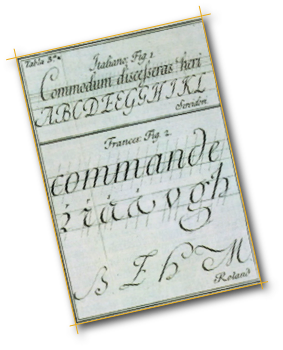 Tabla 3.ª
Italiano; Fig 1.
Commodum discesseras heri
ABCDEFGGHIKL
Servidori
Frances. Fig. 2.
commande
gh
B E h M
Roland